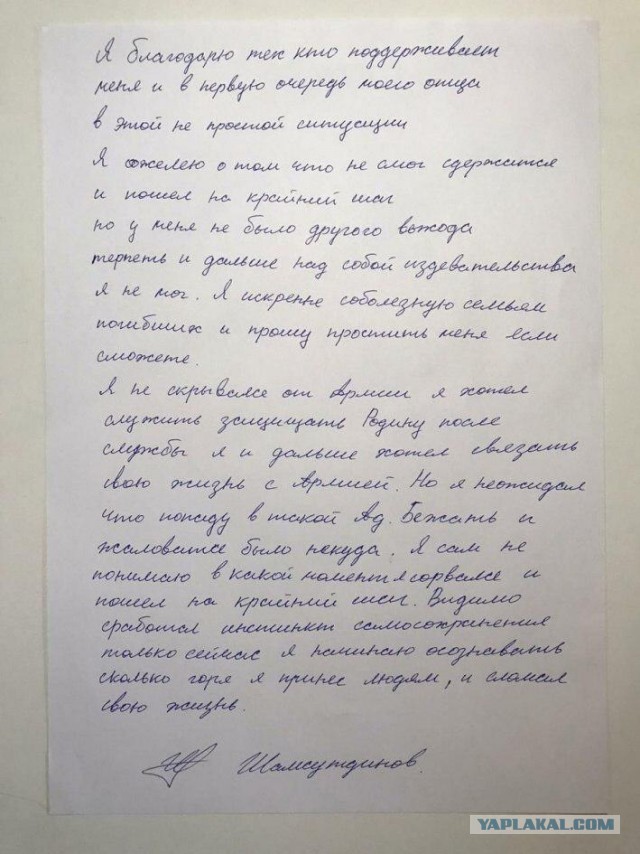 Я благодарю тех кто поддерживает
меня и в первую очередь моего отца
в этой не простой ситуации
Я сожелею о том что не смог сдержатся
и пошел на крайний шаг
но у меня не было другого выхода
терпеть и дальше над собой издевательства
я не мог. Я искренне соболезную семьям
погибших и прошу простить меня если
сможете.
Я не скрывался от Армии я хотел
служить защищать Родину после
службы я и дальше хотел связать
свою жизнь с Армией. Но я неожидал
что попаду в такой Ад. Бежать и
жаловатся было некуда. Я сам не
понимаю в какой момент я сорвался и
пошел на крайний шаг. Видимо
сработал инстинкт самосохранения
только сейчас я начинаю осознавать
сколько горя я принес людям, и сломал
свою жизнь.
Шамсутдинов.
YAPLAKAL.COM